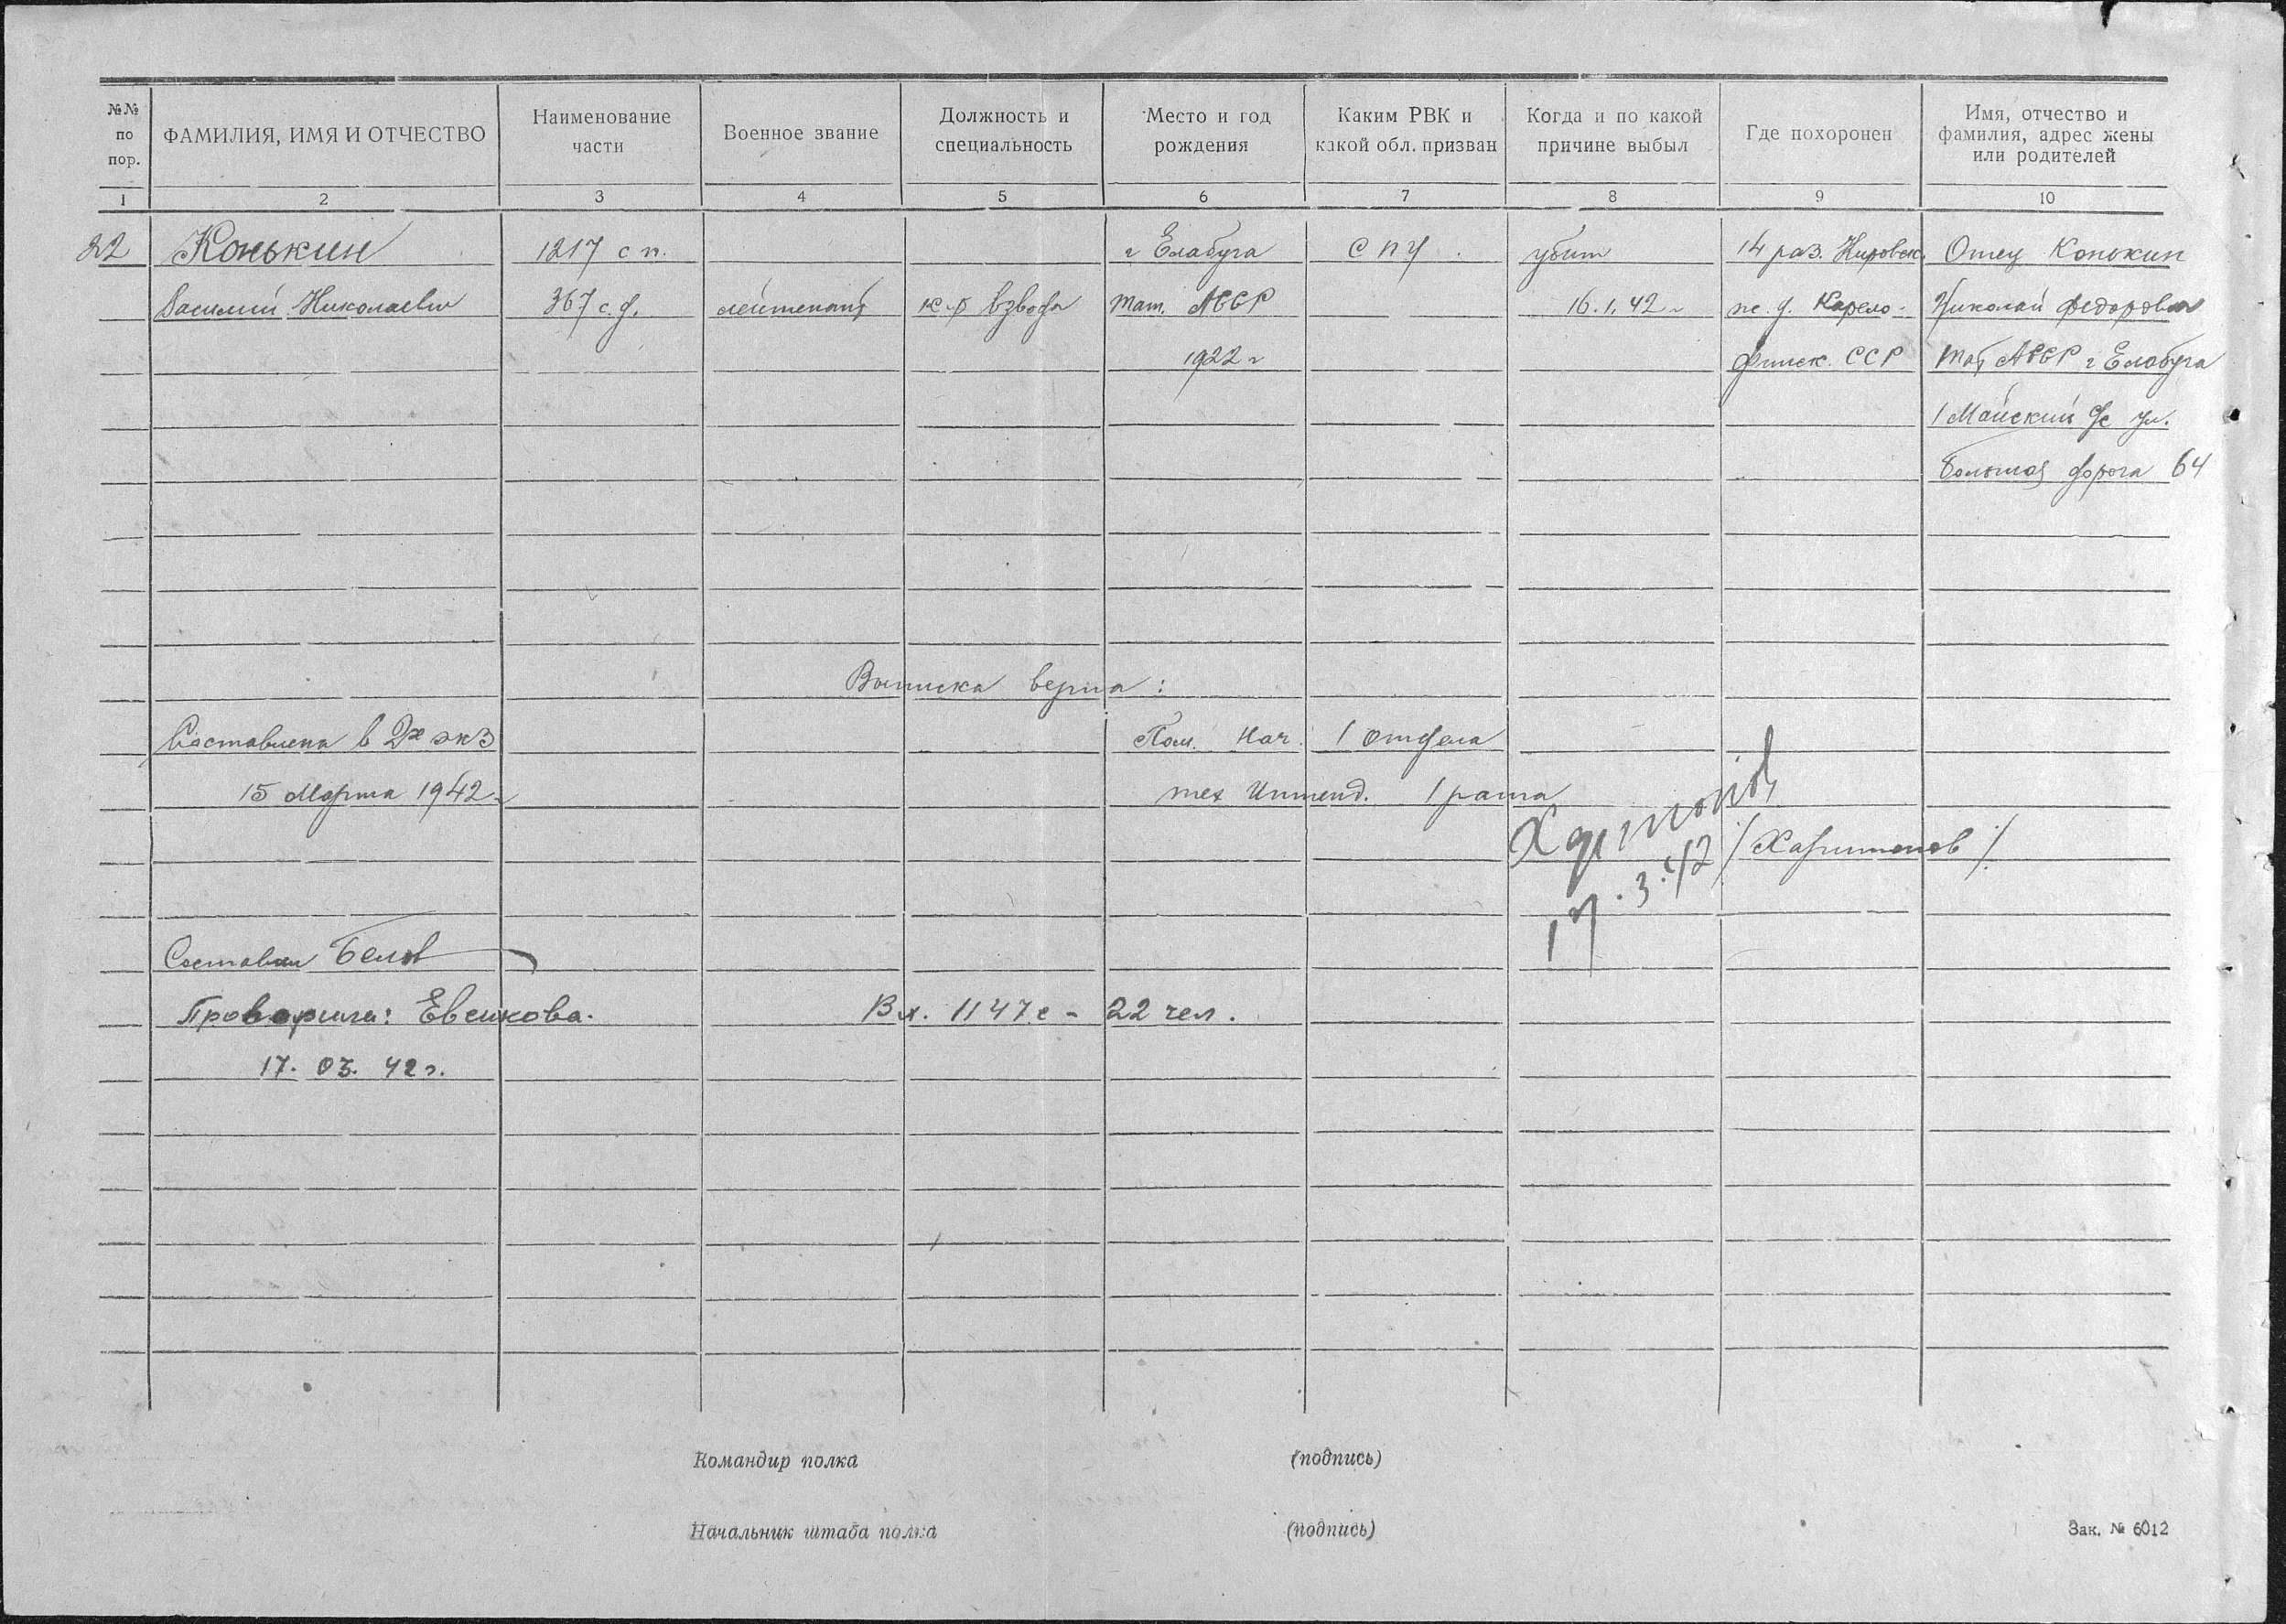 №№ по пор.
ФАМИЛИЯ, ИМЯ И ОТЧЕСТВО
Наименование части
Военное звание
Должность и специальность
Место и год рождения
Каким РВК и какой обл. призван
Когда и по какой причине выбыл
Где похоронен
Имя, отчество и фамилия, адрес жены или родителей
1 2 3 4 5 6 7 8 9 10
22 Конькин 1217 с п. г Елабуга С П У убит 14 раз. Кировск. Отец Конькин
Василий Николаевич 367 с. д. лейтенант к-р взвода Тат. АССР 16.1.42 г ж. д. Карело- Николай Федорович
1922 г Финск. ССР Тат АССР г Елабуга
1 Майский с/с ул.
Большая дорога 64
Выписка верна:
Составлена в 2х экз Пом. Нач. 1 отдела
15 Марта 1942 г тех Интенд. 1 ранга
Харитонов /Харитонов/
17.3.42
Составил Белов
Проверила: Евсикова. Вх. 1147с - 22 чел.
17. 03. 42 г.
Командир полка (подпись)
Начальник штаба полка (подпись)
Зак. № 6012